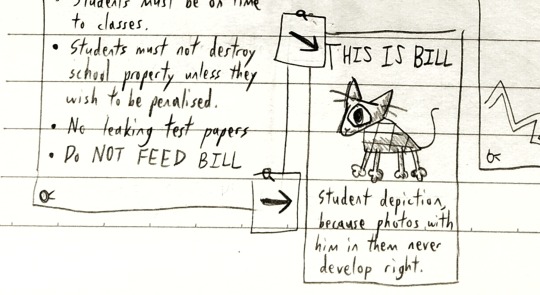 Students must be on time
to classes.
• Students must not destroy
school property unless they
wish to be penalised.
• No leaking test papers
• Do NOT FEED BILL
THIS IS BILL
Student depiction,
because photos with
him in them never
develop right.